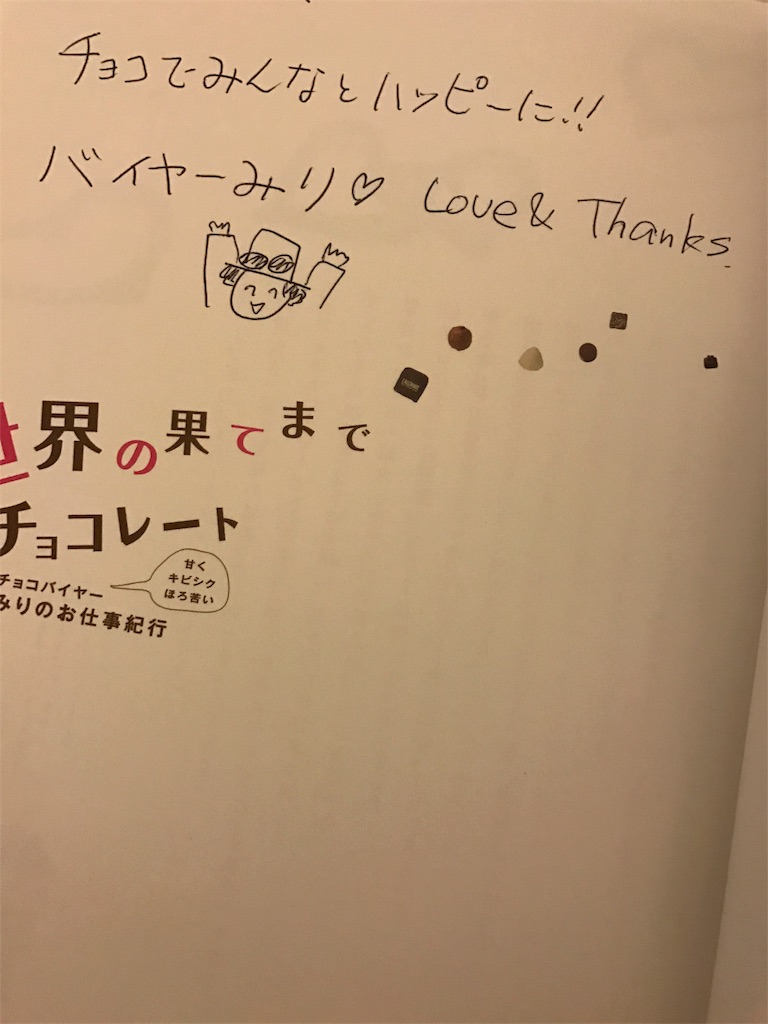 チョコでみんなとハッピーに!!
バイヤーみり♡ Love & Thanks.
世界の果てまで
チョコレート
チョコバイヤー
みりのお仕事紀行
甘く
キビシク
ほろ苦い